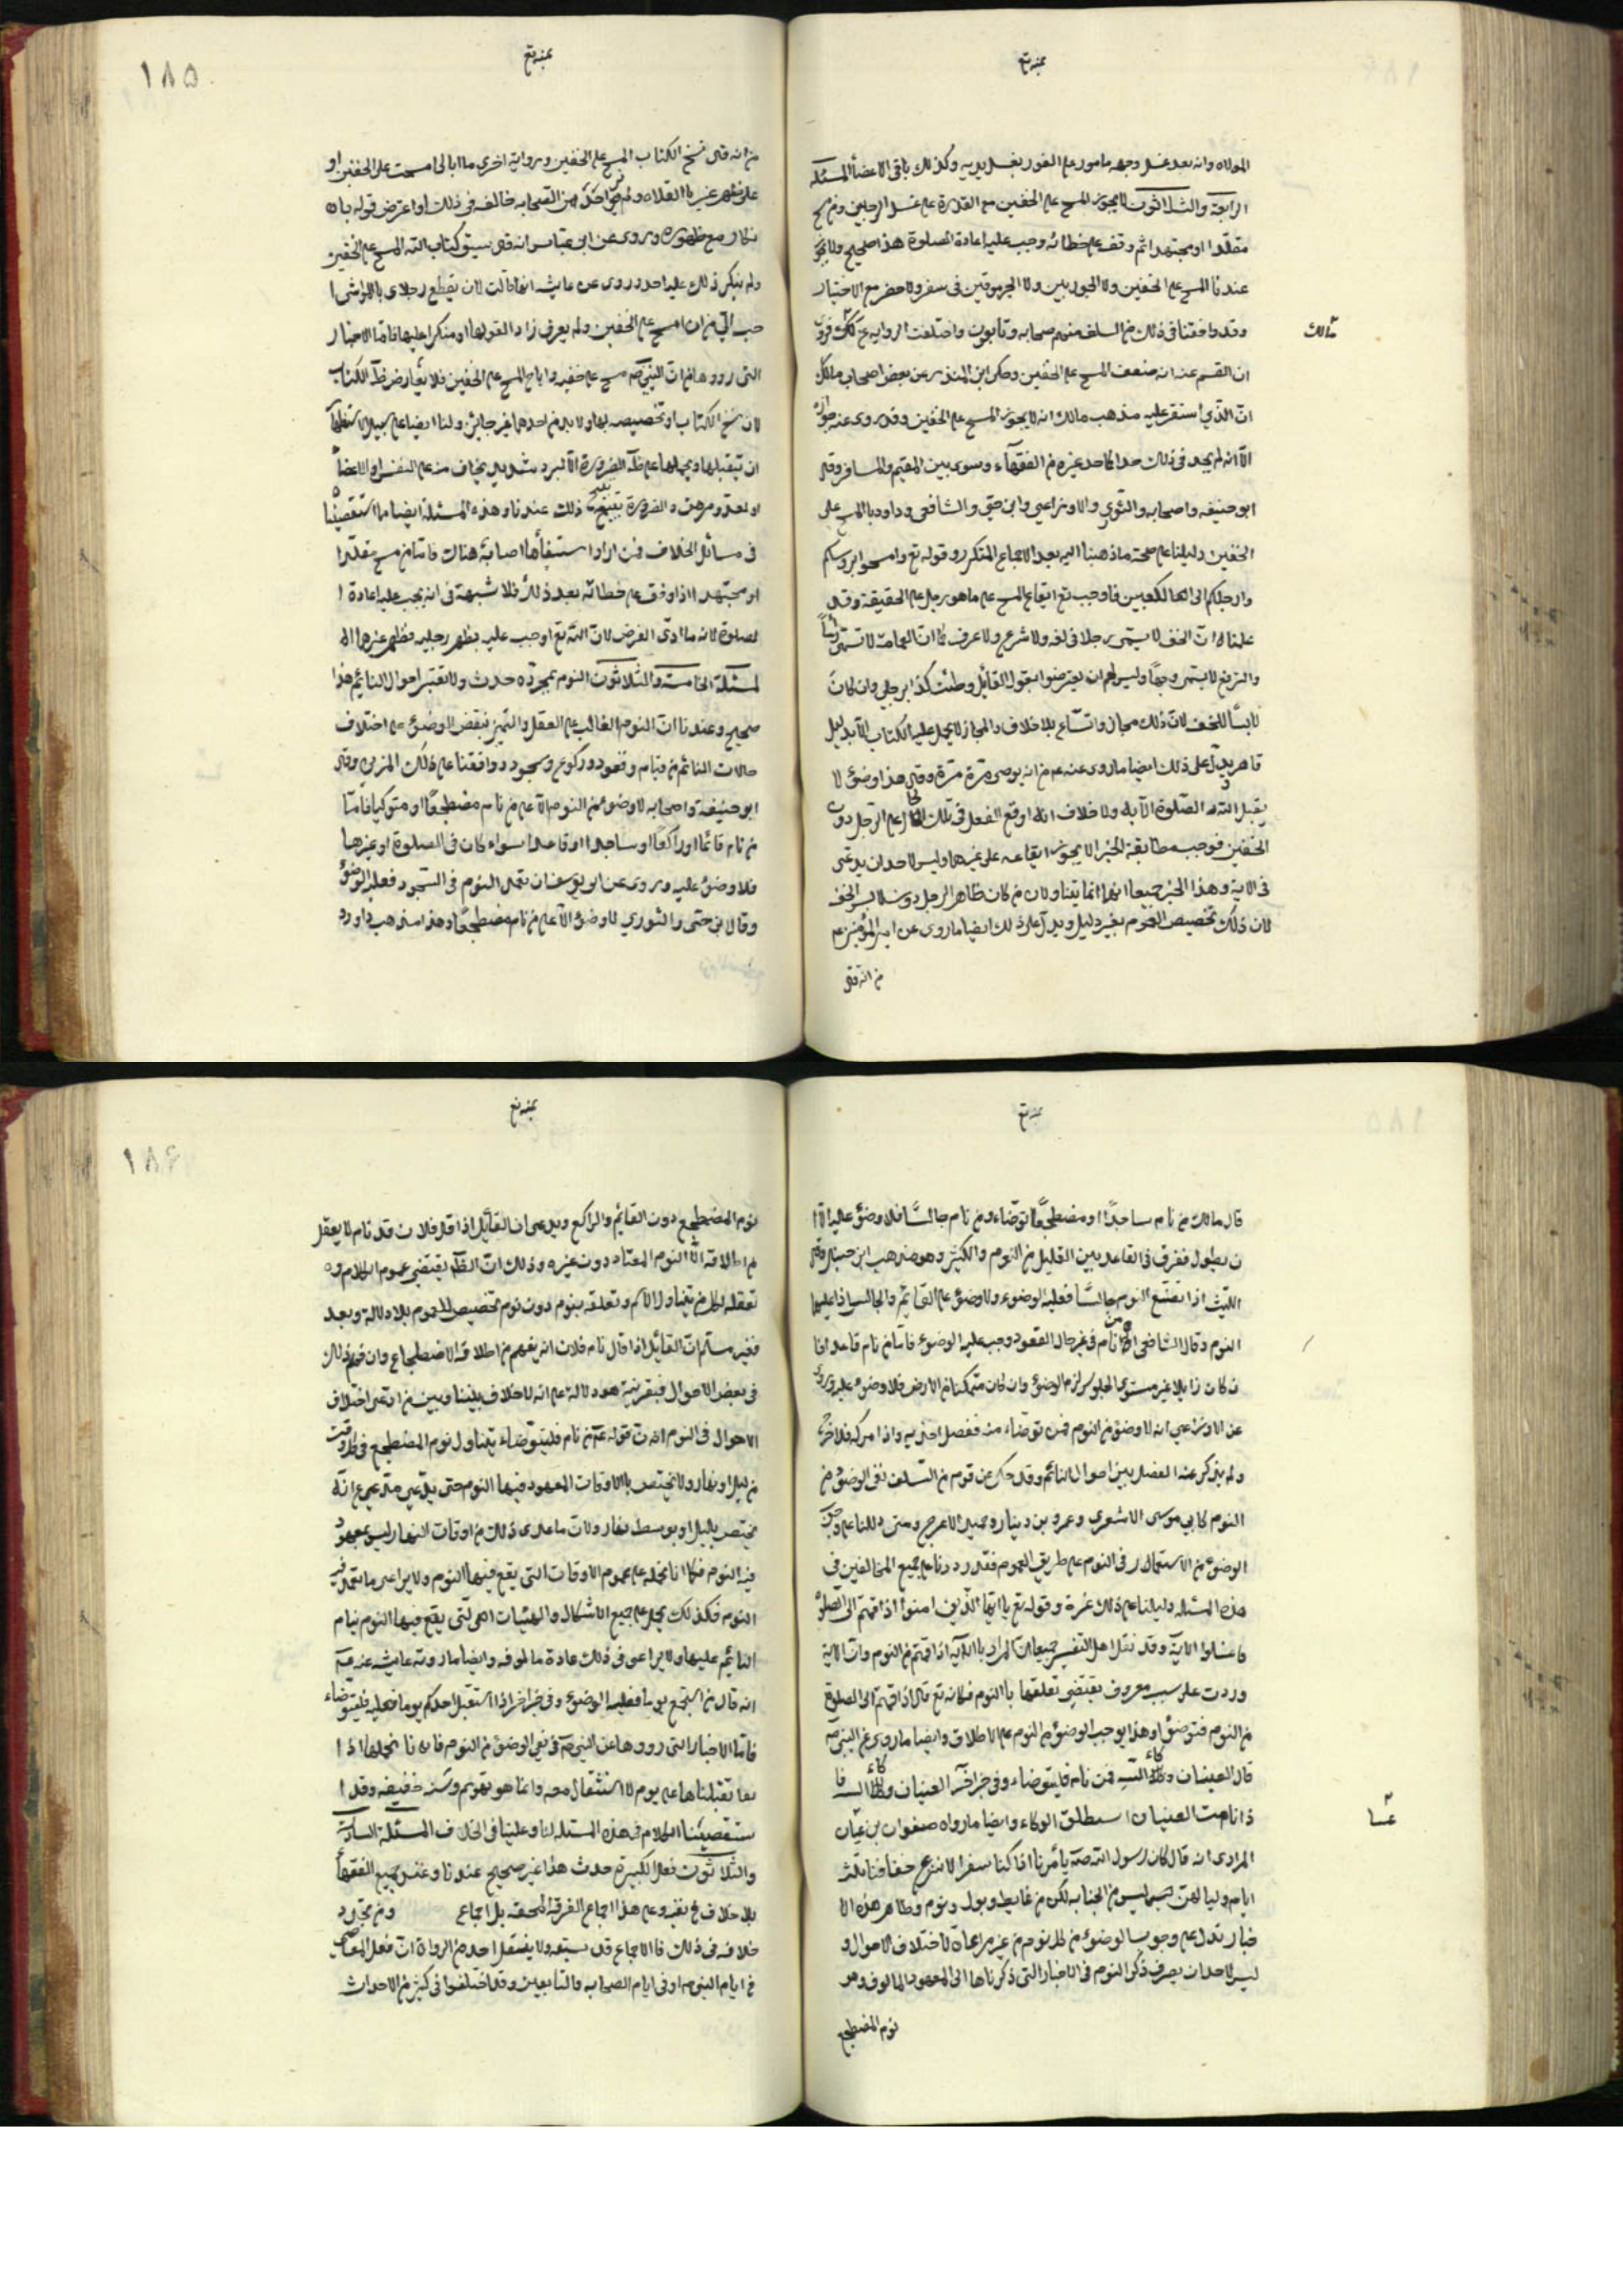 بمنه تع
الموالاه وانه بعد غسل وجهه مامور على الفور بغسل يديه وكذلك باقي الاعضأ المسئلة
الرابعة والثلاثون لا يجوز المسح على الخفين مع القدرة على غسل الرجلين ومن مسح
مقلّدا او مجتهدا ثم وقف على خطائه وجب عليه اعادة الصلوة هذا صحيح ولا يجوز
عندنا المسح على الخفين ولا الجوربين ولا الجرموقين فى سفر ولا حضر مع الاختيار
وقد وافقنا فى ذلك من السلف منهم صحابه وتابعون واختلفت الروايه عن مالك فروى
مالك
ابن القسم عنه انه ضعف المسح على الخفين وحكى ابن المنذر عن بعض اصحاب مالك
انّ الذي استقر عليه مذهب مالك انه لا يجوز المسح على الخفين وقد روى عنه جوازه
الّا انه لم يحد فى ذلك حدا كما حد غيره من الفقهاء وسوى بين المقيم والمسافر وقال
ابو حنيفه واصحابه والثوري والاوزاعي وابن حيّ والشافعى وداود بالمسح على
الخفين دليلنا على صحة ما ذهبنا اليه بعد الاجماع المتكرر وقوله تع وامسحوا برؤسكم
وارجلكم الى الكعبين فاوجب تع ايقاع المسح على ما هو رجل على الحقيقة وقد
علمنا انّ الخف لا يسمّى رجلا فى لغه ولا شرع ولا عرف كما انّ العمامة لا تسمّى رأساً
والبرقع لا يسمى وجهاً وليس لهم ان يعترضوا بقول القائل وطئت كذا برجلي وان كان
لابسأً للخف لانّ ذلك مجاز واتساع بلا خلاف والمجاز لا يحمل عليه الكتاب الّا بدليل
قاهر ويدلّ على ذلك ايضا ما روى عنه عم من انه توضى مرّة مرّة وقال هذا وضوء لا
يقبل الله الصلوة الّا به ولا خلاف انه اوقع الفعل فى تلك الحال على الرجل دون
الخفين فوجب مطابقة الخبر الا يجوز ايقاعه على غيرهما وليس لاحد ان يدعى
فى الاية وهذا الخبر جميعا انهما انما تناولا من كان ظاهر الرجل دون لابس الخف
لان ذلك تخصيص العموم بغير دليل ويدلّ على ذلك ايضا ما روى عن امير المؤمنين عم
من انه قال
١٨٥
بمنه تع
من انه قال نسخ الكتاب المسح على الخفين وبرواية اخرى ما ابالى امسحت على الخفين او
على ظهر عير بالفلاه ولم نجد احدًا من الصحابه خالفه فى ذلك او اعترض قوله بان
نكار مع ظهوره وروى عن ابن عباس انه قال سبق كتاب الله المسح على الخفين
ولم ينكر ذلك عليه احد وروى عن عايشه انها قالت لان تقطع رجلاى بالمواشى ا
حب الىّ من ان امسح على الخفين ولم يعرف رادا لقولها او منكرا عليها فامّا الاخبار
التى رووها من انّ النبي صه مسح على خفيه واباح المسح على الخفين فلا يعارض ظاهر الكتاب
لان نسخ الكتاب او تخصيصه بها ولا بد من احدهما غير جائز ولنا ايضا على سبيل الاستظهار
ان نتقبلها ونحملها على ظاهر الضرورة الّا لبرد شديد يخاف منه على النفس او الاعضاء
او لعدو مرهق والضرورة تبيح ذلك عندنا وهذه المسئلة ايضا مما استقصيناه
فى مسائل الخلاف فمن اراد استيفأها اصابه هناك فامّا من مسح مقلّدا
او مجتهدا اذا وقف على خطائه بعد ذلك فلا شبهة فى انه يجب عليه اعادة ا
لصلوة لانه ما ادّى الفرض لانّ الله تع اوجب عليه تطهير رجليه فطهر غيرهما ال
لمسئلة الخامسة والثلاثون النوم بمجرّده حدث ولا نعتبر احوال النائم هذا
صحيح وعندنا انّ النوم الغالب على العقل والتميز ينقض الوضوء على اختلاف
حالات النائم من قيام وقعود وركوع وسجود ووافقنا على ذلك المزنى وقال
ابو حنيفة واصحابه لا وضوء من النوم الّا على من نام مضطجعاً او متوكيا فامّا
من نام قائما او راكعاً او ساجدا او قاعدا سواء كان فى الصلوة او غيرها
فلا وضوء عليه وروى عن ابو يوسف ان تعمد النوم فى السجود فعليه الوضوء
وقال ابن حى والثوري لا وضوء الّا على من نام مضطجعاً وهذا مذهب داود
بمنه تع
قال مالك من نام ساجداً او مضطجعاً توضاء ومن نام جالساً فلا وضوء عليه الّا ا
ن يطول ففرق فى القاعد بين القليل من النوم والكثير وهو مذهب ابن حنبل وقال
الليث اذا تصنّع النوم جالسًا فعليه الوضوء ولا وضوء على القائم والجالس اذا غلبهما
النوم وقال الشافعى من نام فى غير حال القعود وجب عليه الوضوء فامّا من نام قاعدا فا
ن كان زايلا غير مستوى الجلوس لزمه الوضوء وان كان متمكنا من الارض فلا وضوء عليه وروى
عن الاوزاعى انه لا وضوء من النوم فمن توضاء منه ففضل اخذ به وان تركه فلا حرج
ولم يذكر عنه الفصل بين احوال النائم وقد حكى عن قوم من السلف نفى الوضوء من
النوم كابي موسى الاشعري وعمرو بن دينار وحميد الاعرج ومتى دللنا على وجوب
الوضوء من الاستعمال فى النوم على طريق العموم فقد رددنا على جميع المخالفين فى
هذه المسئله دليلنا على ذلك وقوله تع يا ايها الذين امنوا اذا قمتم الى الصلوة
فاغسلوا الاية وقد نقل اهل التفسير جميعا انّ المراد بالاية اذا قمتم من النوم وانّ الاية
وردت على سبب معروف يقتضى تعلقها بالنوم فكانه تع قال اذا قمتم الى الصلوة
من النوم فتوضؤا وهذا يوجب الوضوء من النوم على الاطلاق وايضا ما روى عن النبى صه
قال العينان وكاء السه فمن نام فليتوضاء وفى خبر اخر العينان وكاء السه فا
ذا نامت العينان استطلق الوكاء وايضا ما رواه صفوان بن عسّال
عسّا
المرادى انه قال كان رسول الله صه يأمرنا اذا كنا سفرا الا ننزع خفافنا ثلاثة
ايام ولياليهن ليس من الجنابه لكن من غايط وبول ونوم وظاهر هذه الا
خبار تدل على وجوب الوضوء من كل نوم من غير مراعاة لاختلاف الاحوال و
ليس لاحد ان يصرف ذكر النوم فى الاخبار التى ذكرناها الى المعهود المالوف وهو
نوم المضطجع
١٨٦
بمنه تع
نوم المضطجع دون القائم والراكع ويدعى ان القائل اذا قال فلان قد نام لا يعقل
من اطلاقه الّا النوم المعتاد دون غيره وذلك انّ الظاهر يقتضى عموم الكلام و
تعلقه لكل من يتناوله الاسم وتعلقه بنوم دون نوم تخصيص للعموم بلا دلالة وبعد
فغير مسلّم انّ القائل اذا قال نام فلان انه يفهم من اطلاقه الاضطجاع وان فهم ذلك
فى بعض الاحوال فبقرينة هو دلالة على انه لا خلاف بيننا وبين من ادّعى اختلاف
الاحوال فى النوم انّ قوله عم من نام فليتوضاء يتناول نوم المضطجع فى كل وقت
من ليل او نهار ولا يختص بالاوقات المعهود فيها النوم حتى يدّعى مدّعى انّه
يختص بليل او بوسط نهار ولانّ ما عدى ذلك من اوقات النهار ليس بمعهود
فيه النوم فكما انا نحمله على عموم الاوقات التى يقع فيها النوم ولا يراعى ما تعهد فيه
النوم فكذلك يحمل على جميع الاشكال والهيئات التى يقع فيها النوم نيام
النائم عليها ولا يراعى فى ذلك عادة مالوفه وايضا ما روته عايشه عنه عم
انه قال من استجمع نوما فعليه الوضوء وفى خبر اخر اذا استثقل احدكم نوما فليتوضاء
فامّا الاخبار التى رووها عن النبى صه فى نفى الوضوء من النوم فانا نحملها اذا
تقبلناها على نوم لا استثقال معه وانما هو تهويم وسنه خفيفه وقد ا
ستقصينا الكلام فى هذه المسئله لنا وعلينا فى الخلاف المسئلة السادسة
والثلاثون فعل الكبيرة حدث هذا غير صحيح عندنا وعند جميع الفقهاء
بلا خلاف وعلى هذا اجماع الفرقة المحقه بل اجماع ومن تجدد
خلافه فى ذلك فالاجماع قد سبقه ولا ينقل احد من الرواة انّ فعل المعاصى
فى ايام النبى صه او فى ايام الصحابه والتابعين وقد اختلفوا فى كثير من الاحداث